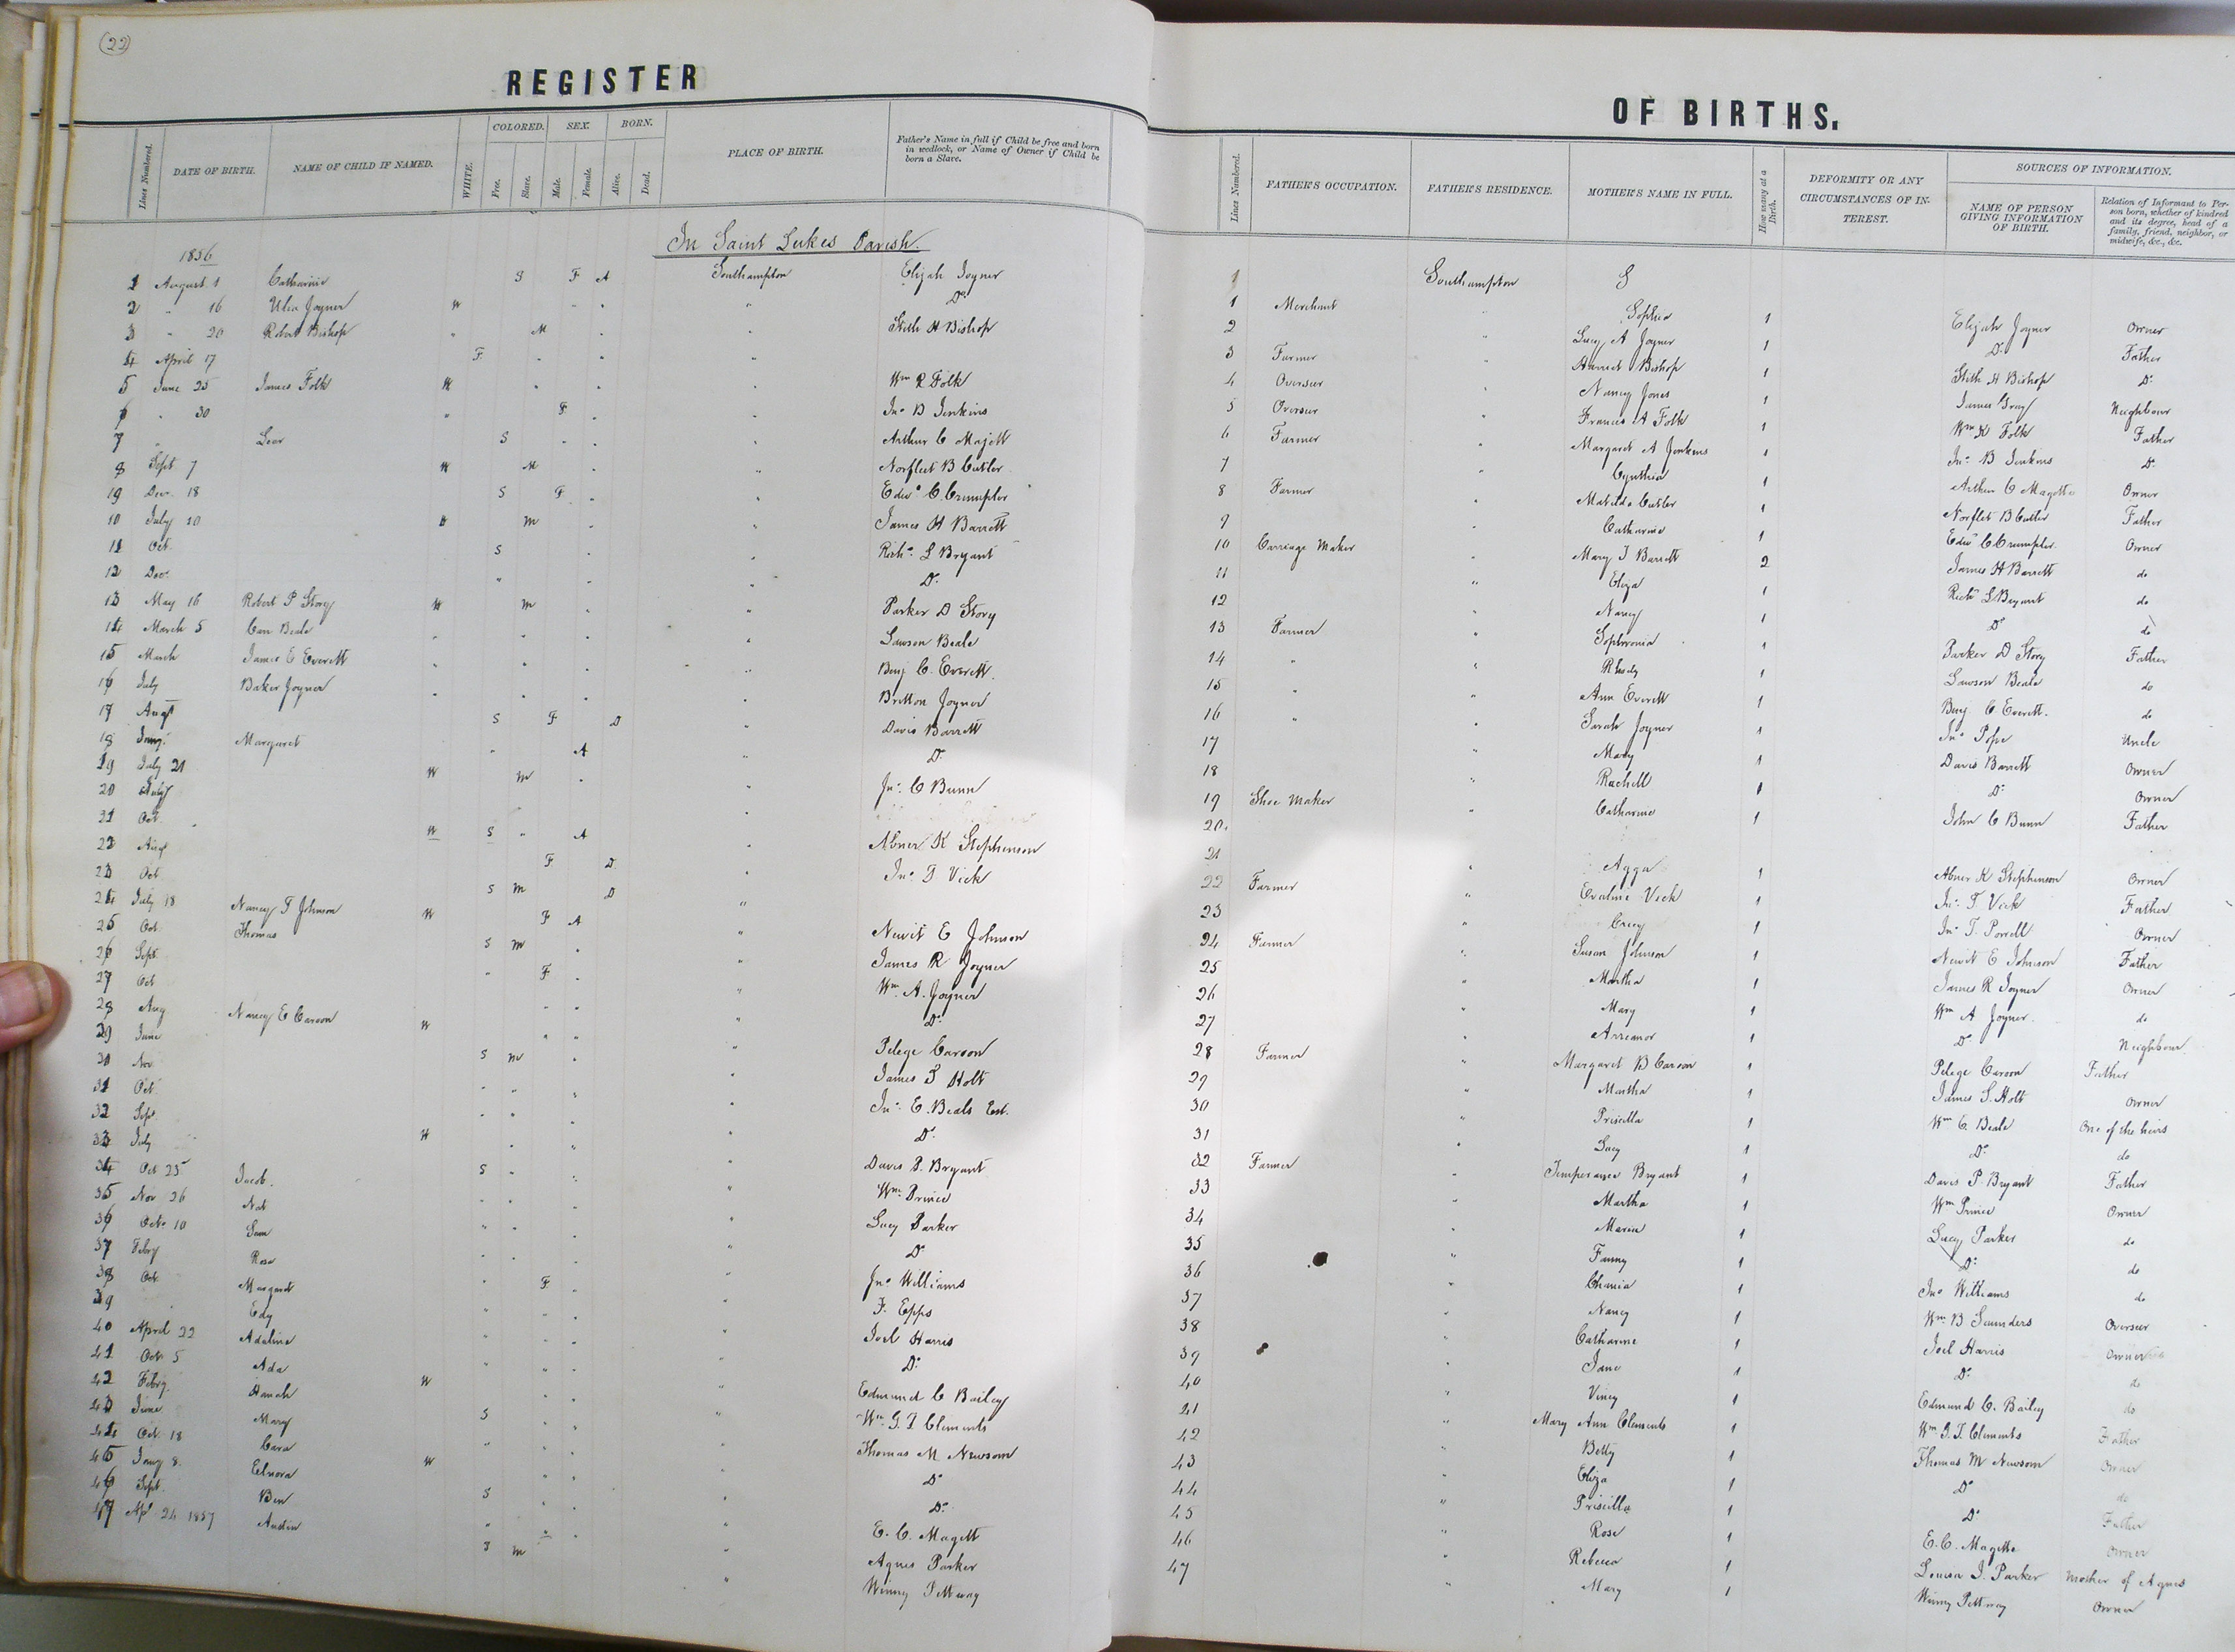 (22)
REGISTER
Lines Numbered. DATE OF BIRTH. NAME OF CHILD IF NAMED. WHITE. COLORED. Free. Slave. SEX. Male. Female. BORN. Alive. Dead. PLACE OF BIRTH. Father's Name in full if Child be free and born in wedlock, or Name of Owner if Child be born a Slave.
In Saint Lukes Parish.
1856
1 August 1 Catharine S F A Southampton Elijah Joyner
2 " 16 Joyner W " " " Do
3 " 20 Robert Bishop " M " " Stith H Bishop
4 April 17 F " " "
5 June 25 James Folk W " " " Wm R Folk
6 " 30 " F " " Jno B Jenkins
7 " S " " " Arthur C Majett
8 Sept 7 W M " " Norfleet B Cutler
19 Dec. 18 S F " " Edwd C. Crumpler
10 July 10 W M " " James H Barrett
11 Oct. S " " Richd L Bryant
12 Dec. " " " Do
13 May 16 Robert P Story W M " " Parker D Story
14 March 5 Carr Beale " " " " Lawson Beale
15 March James E Everett " " " " Benj C. Everett.
16 July Baker Joyner " " " " Britton Joyner
17 Augt S F D " Davis Barrett
18 Jany. Margaret " " A " Do
19 July 21 W M " " Jno C Bunn
20 July
21 Oct. W S " A " Abner K Stephenson
22 Augt F D " Jno T Vick
23 Oct S M D "
24 July 18 Nancy T Johnson W F A " Newit E Johnson
25 Oct. Thomas S M " " James R Joyner
26 Sept. " F " " Wm A. Joyner
27 Oct " " " Do
28 Aug Nancy E Carson W " " " Pelege Carson
29 June S M " " James S Holt
30 Nov " " " " Jno E. Beals Est.
31 Oct. " " " " Do
32 Sept. W " " " Davis P. Bryant
33 July S " " " Wm Prince
34 Oct 25 Jacob. " " " " Lucy Parker
35 Nov 26 Nat " " " " Do
36 Octr 10 Sam " " " " Jno Williams
37 Feby Rose " F " " F. Epps
38 Oct. Margaret " " " " Joel Harris
39 Edy " " " " Do
40 April 22 Adaline " " " " Edmund C Bailey
41 Oct 5 Ada W " " " Wm G T Clements
42 Feby. Hanah S " " " Thomas M Newsom
43 June Mary " " " " Do
44 Oct. 18 Cara W " " " Do
45 Jany 8. Elnora S " " " E. C. Magett
46 Sept. Ben " " " " Agnes Parker
47 Apl 24 1857 Austin S M " Winny Pettway
OF BIRTHS.
Lines Numbered. FATHER'S OCCUPATION. FATHER'S RESIDENCE. MOTHER'S NAME IN FULL. How many at a Birth. DEFORMITY OR ANY CIRCUMSTANCES OF INTEREST. SOURCES OF INFORMATION. NAME OF PERSON GIVING INFORMATION OF BIRTH. Relation of Informant to Person born, whether of kindred and its degree, head of a family, friend, neighbor, or midwife, &c., &c.
1 Southampton S
1 Merchant " Sophia 1 Elijah Joyner Owner
2 " Lucy A Joyner 1 Do Father
3 Farmer " Harriet Bishop 1 Stith H Bishop Do
4 Overseer " Nancy Jones 1 James Gray Neighbour
5 Overseer " Frances A Folk 1 Wm R Folk Father
6 Farmer " Margaret A Jenkins 1 Jno B Jenkins Do
7 " Cynthia 1 Arthur C Magette Owner
8 Farmer " Matilda Cutler 1 Norflet B Cutler Father
9 " Catharine 1 Edwd C Crumpler. Owner
10 Carriage Maker " Mary J Barrett 2 James H Barrett do
11 " Eliza 1 Richd L Bryant do
12 " Nancy 1 Do do
13 Farmer " Sophronia 1 Parker D Story Father
14 " " Rhody 1 Lawson Beale do
15 " " Ann Everett 1 Benj. C. Everett. do
16 " " Sarah Joyner 1 Jno Pope Uncle
17 " Mary 1 Davis Barrett Owner
18 " Rachell 1 Do Owner
19 Shoe Maker " Catharine 1 John C Bunn Father
20.
21 " Agga 1 Abner K Stephenson Owner
22 Farmer " Evaline Vick 1 Jno T Vick Father
23 " Creecy 1 Jno T. Powell Owner
24 Farmer " Susan Johnson 1 Newit E Johnson Father
25 " Martha 1 James R Joyner Owner
26 " Mary 1 Wm A Joyner. do
27 " 1 Do Neighbour
28 Farmer " Margaret B Carson 1 Pelege Carson Father
29 " Martha 1 James S. Holt Owner
30 " Priscilla 1 Wm C. Beale One of the heirs
31 " Lucy 1 Do do
32 Farmer " Temperance Bryant 1 Davis P. Bryant Father
33 " Martha 1 Wm Prince Owner
34 " Maria 1 Lucy Parker do
35 " Fanny 1 Do do
36 " 1 Jno Williams do
37 " Nancy 1 Wm B Saunders Overseer
38 " Catharine 1 Joel Harris Owner
39 " Jane 1 Do do
40 " Viney 1 Edmund C. Bailey do
41 " Mary Ann Clements 1 Wm G. T. Clements Father
42 " Betty 1 Thomas M Newsom Owner
43 " Eliza 1 Do do
44 " Priscilla 1 Do Father
45 " Rose 1 E. C. Magette Owner
46 " Rebecca 1 Louisa J. Parker Mother of Agnes
47 " Mary 1 Winny Pettway Owner